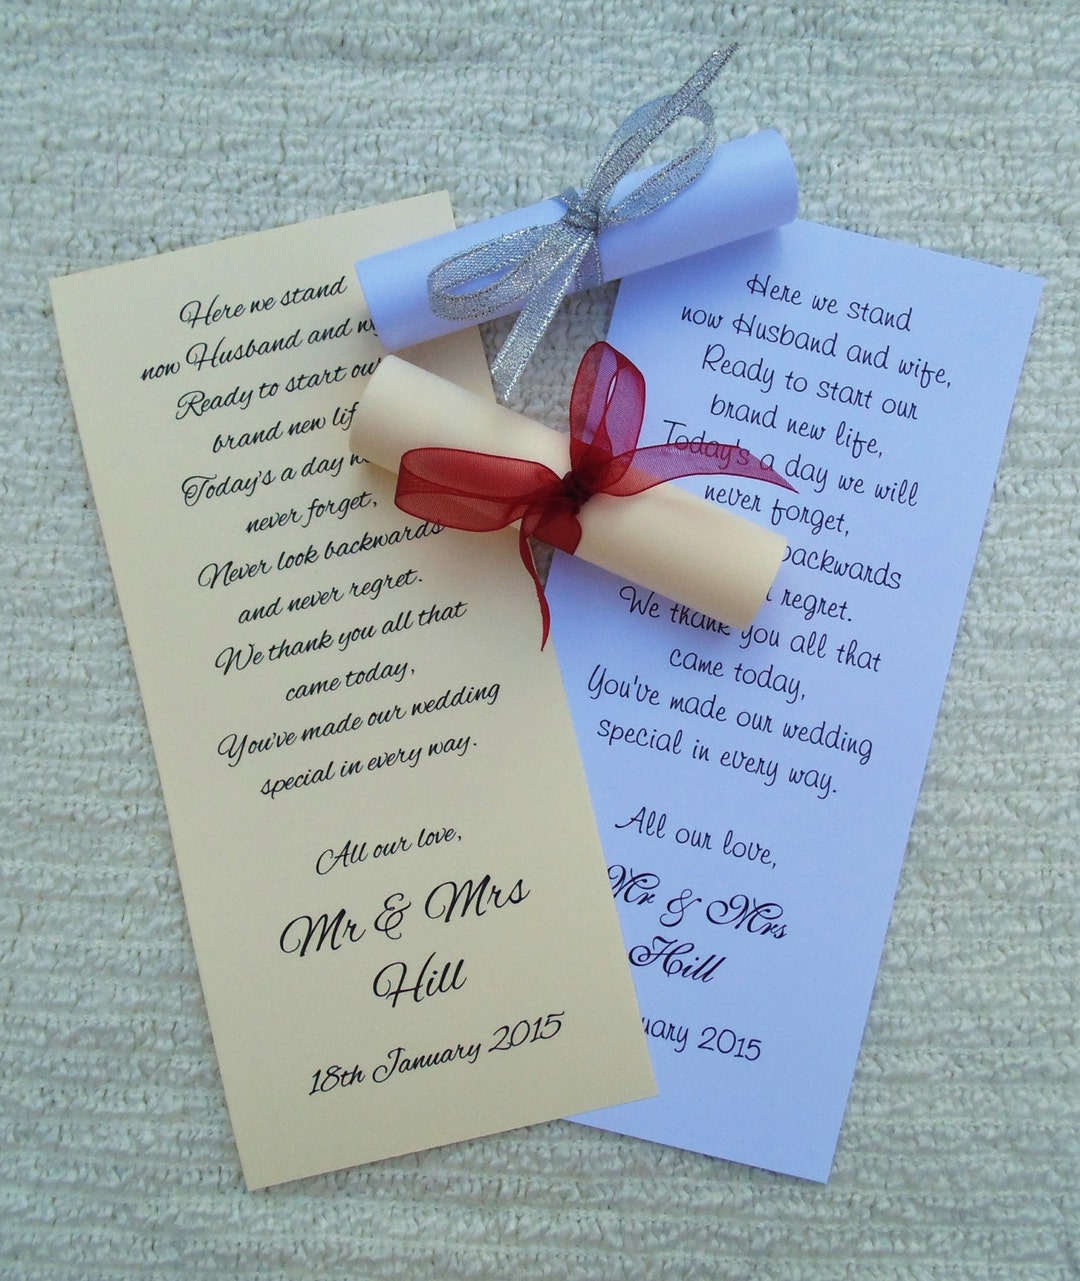 Here we stand
now Husband and
Ready to start our
brand new
Today's a day
never forget,
Never look backwards
and never regret.
We thank you all that
came today,
You've made our wedding
special in every way.
All our love,
Mr & Mrs
Hill
18th January 2015
Here we stand
now Husband and wife,
Ready to start our
brand new life,
Today's a day we will
never forget,
backwards
regret.
We thank you all that
came today,
You've made our wedding
special in every way.
All our love,
Mr & Mrs
Hill
2015